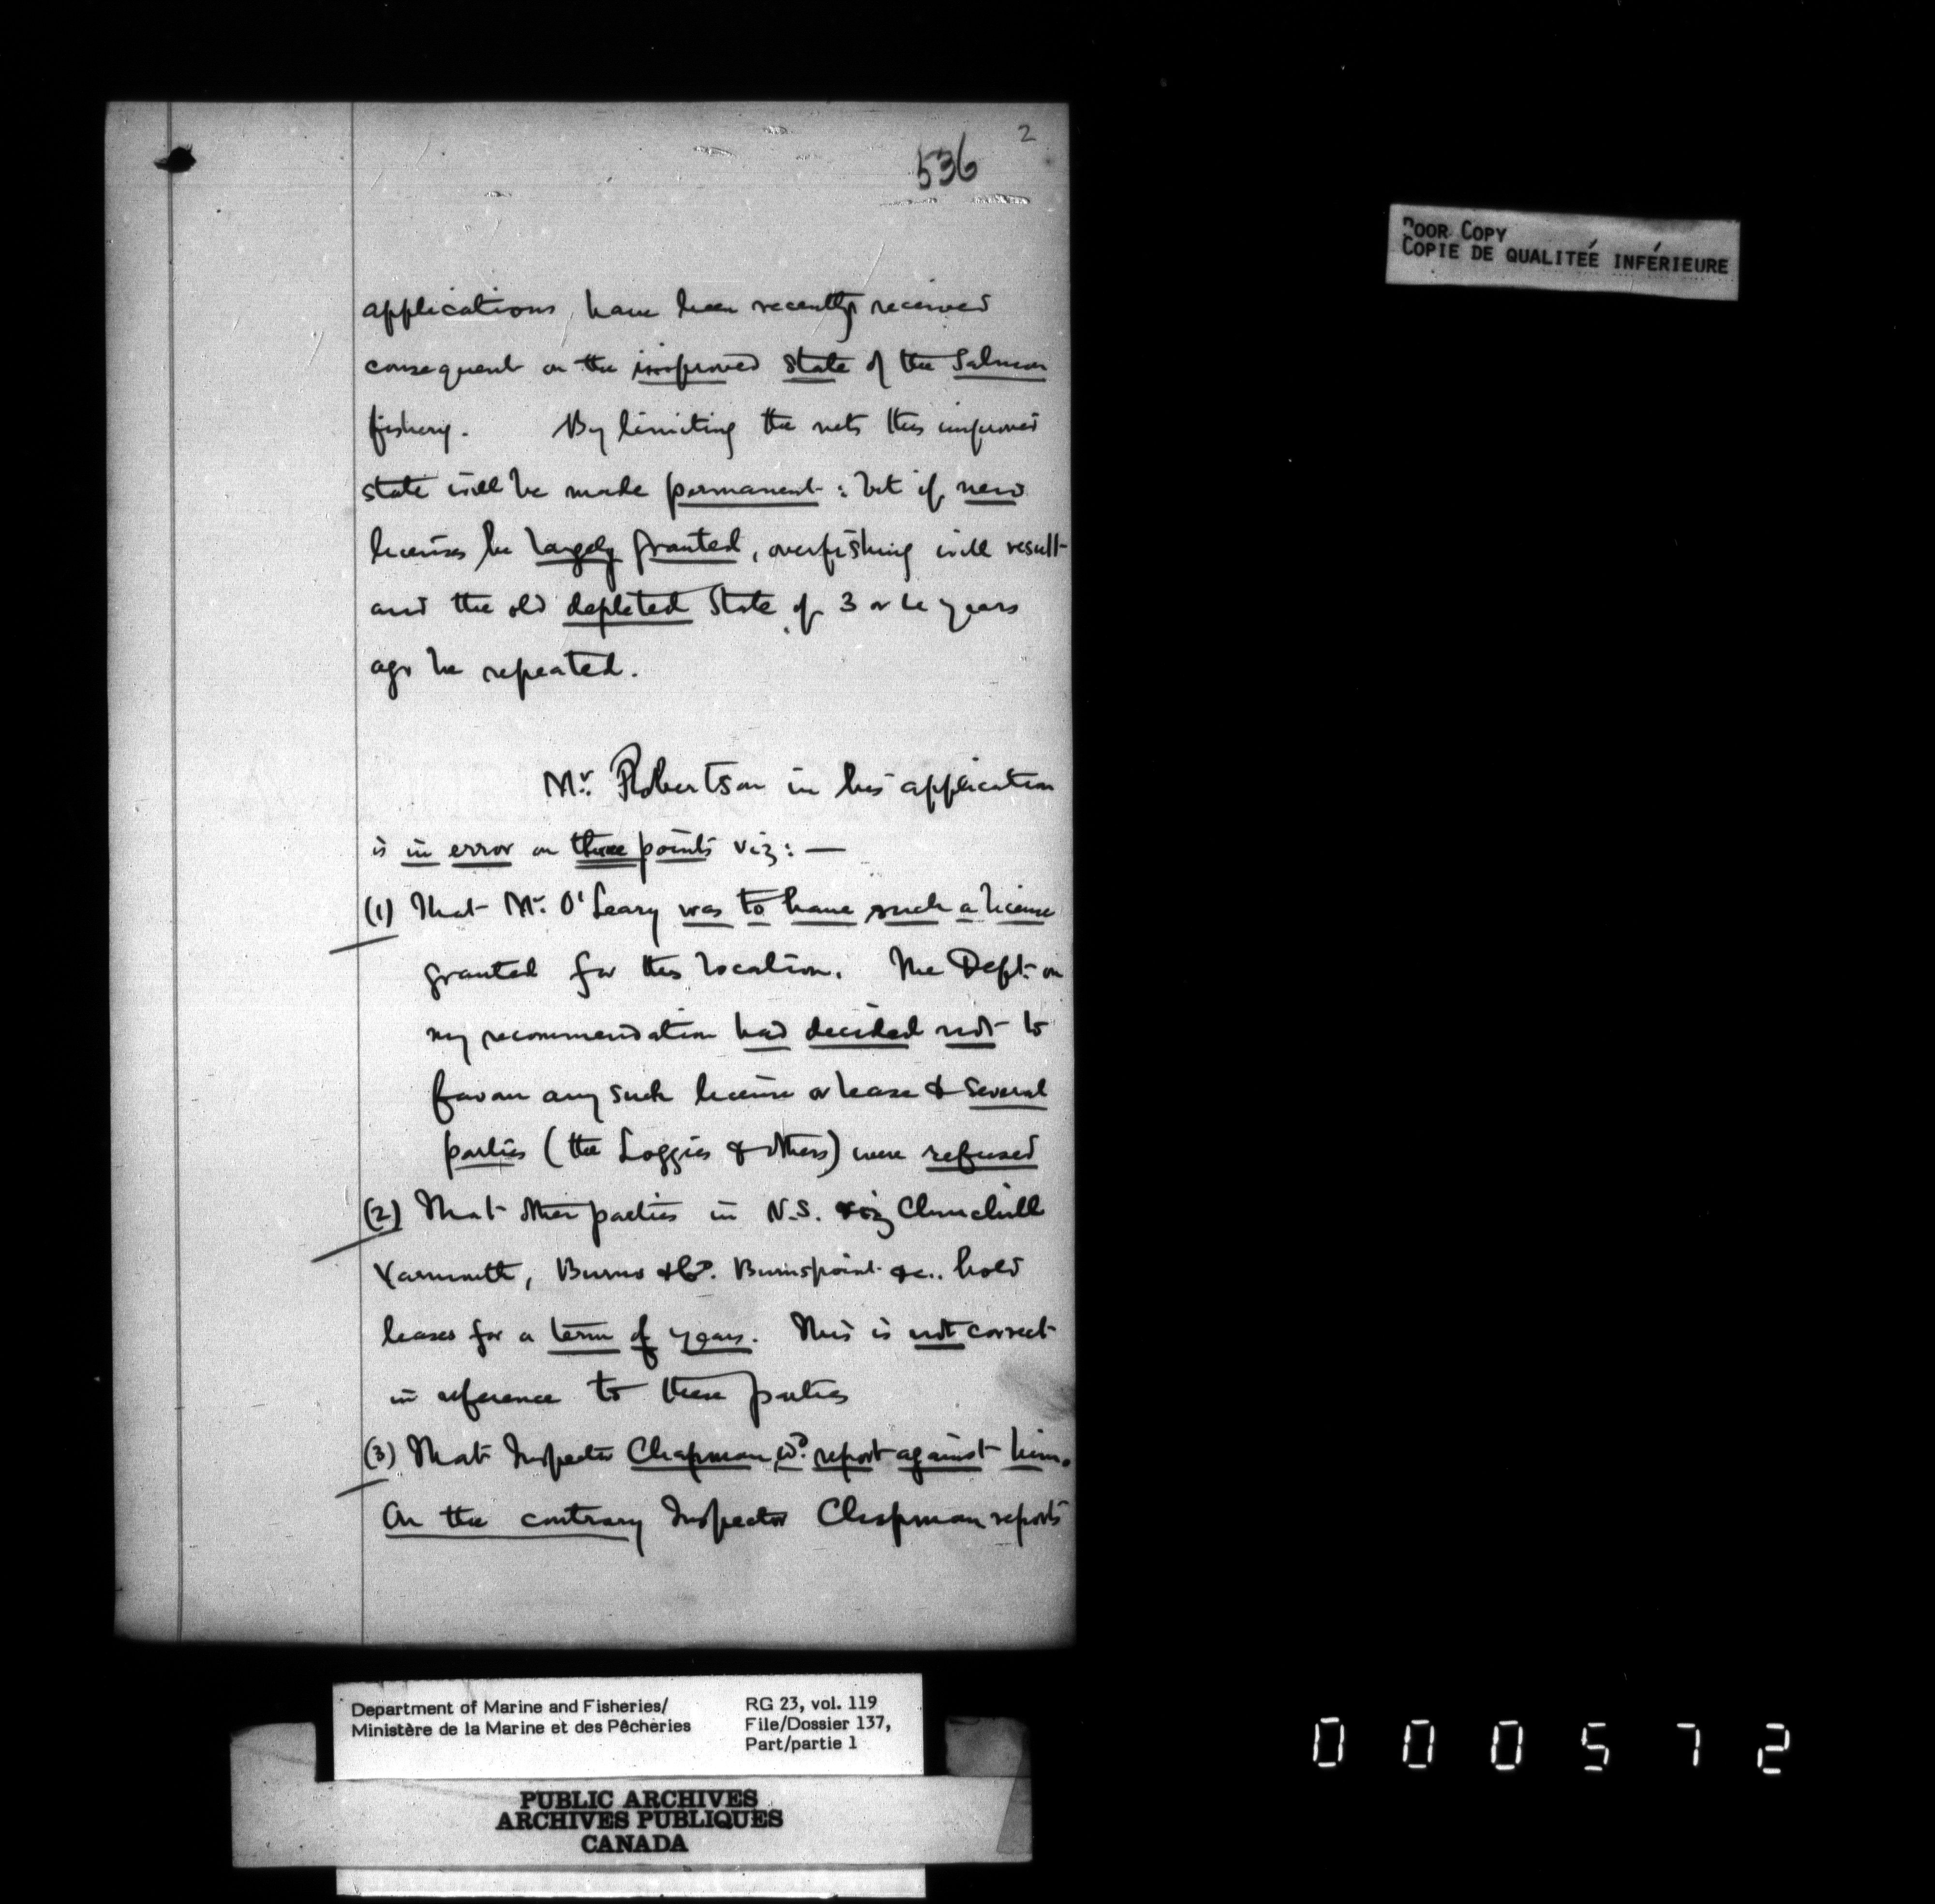 2
536
POOR COPY
COPIE DE QUALITÉE INFÉRIEURE
applications have been recently received
consequent on the improved state of the Salmon
fishery. By limiting the nets this improved
state will be made permanent: but if new
licenses be largely granted, overfishing will result
and the old depleted State of 3 or 4 years
ago be repeated.
Mr. Robertson in his application
is in error on three points viz: —
(1) That Mr. O'Leary was to have such a license
granted for this location. The Dept. on
my recommendation had decided not to
favour any such license or lease & several
parties (the Loggies & others) were refused
(2) That other parties in N.S. viz Churchill
Yarmouth, Burns & Co. Burnspoint &c.. hold
leases for a term of years. This is not correct
in reference to these parties
(3) That Inspector Chapman wd. report against him.
On the contrary Inspector Chapman reports
Department of Marine and Fisheries/
Ministère de la Marine et des Pêcheries
RG 23, vol. 119
File/Dossier 137,
Part/partie 1
PUBLIC ARCHIVES
ARCHIVES PUBLIQUES
CANADA
000572